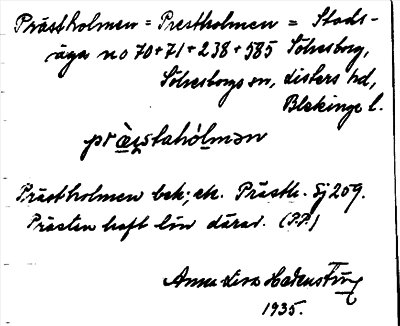 Prästholmen = Prestholmen = Stads-
äga no 70+71+238+585 Sölvesborg,
Sölvesborgs sn, Listers hd,
Blekinge l.
præstahólmən
Prästholmen bek; ek. Prästh. Sj 259.
Prästen haft lön därav. (P.P.)
Anna Lisa
1935.